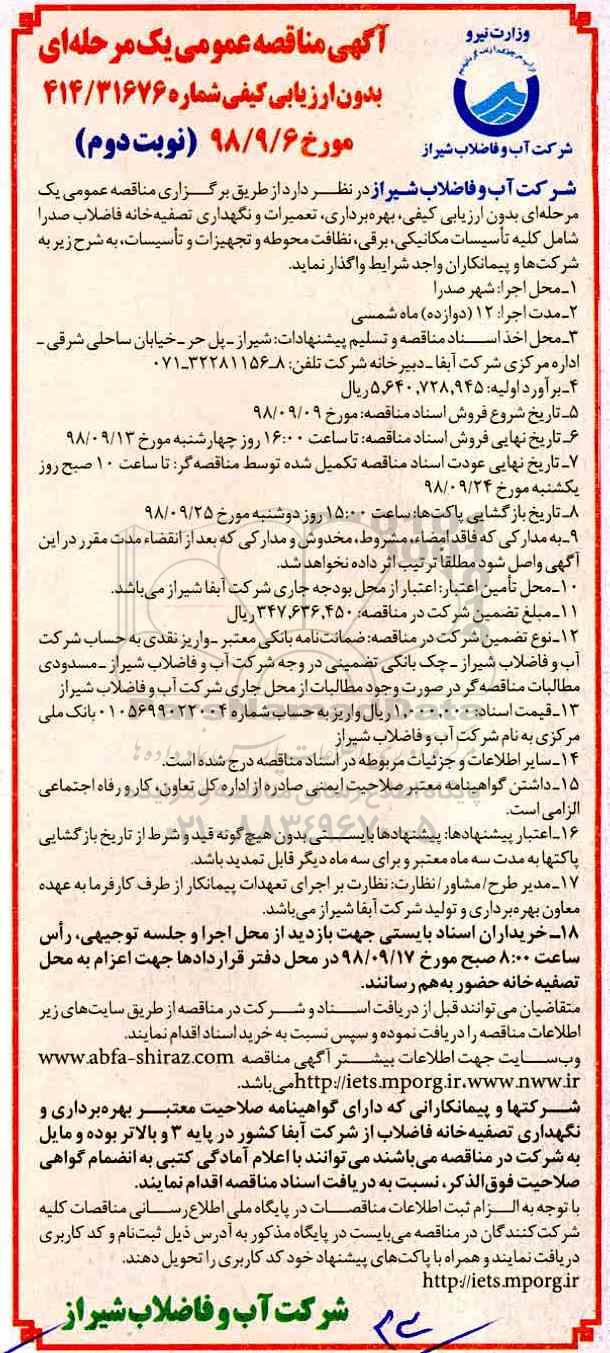 وزارت نیرو
شرکت آب و فاضلاب شیراز
آگهی مناقصه عمومی یک مرحله‌ای
بدون ارزیابی کیفی شماره ۴۱۴/۳۱۶۷۶
مورخ ۹۸/۹/۶ (نوبت دوم)
شرکت آب و فاضلاب شیراز در نظر دارد از طریق برگزاری مناقصه عمومی یک
مرحله‌ای بدون ارزیابی کیفی، بهره‌برداری، تعمیرات و نگهداری تصفیه‌خانه فاضلاب صدرا
شامل کلیه تأسیسات مکانیکی، برقی، نظافت محوطه و تجهیزات و تأسیسات، به شرح زیر به
شرکت‌ها و پیمانکاران واجد شرایط واگذار نماید.
۱ـ محل اجرا: شهر صدرا
۲ـ مدت اجرا: ۱۲ (دوازده) ماه شمسی
۳ـ محل اخذ اسناد مناقصه و تسلیم پیشنهادات: شیراز ـ پل حر ـ خیابان ساحلی شرقی ـ
اداره مرکزی شرکت آبفا ـ دبیرخانه شرکت تلفن: ۸ـ۳۲۲۸۱۱۵۶ـ۰۷۱
۴ـ برآورد اولیه: ۵،۶۴۰،۷۲۸،۹۴۵ ریال
۵ـ تاریخ شروع فروش اسناد مناقصه: مورخ ۹۸/۰۹/۰۹
۶ـ تاریخ نهایی فروش اسناد مناقصه: تا ساعت ۱۶:۰۰ روز چهارشنبه مورخ ۹۸/۰۹/۱۳
۷ـ تاریخ نهایی عودت اسناد مناقصه تکمیل شده توسط مناقصه‌گر: تا ساعت ۱۰ صبح روز
یکشنبه مورخ ۹۸/۰۹/۲۴
۸ـ تاریخ بازگشایی پاکت‌ها: ساعت ۱۵:۰۰ روز دوشنبه مورخ ۹۸/۰۹/۲۵
۹ـ به مدارکی که فاقد امضاء، مشروط، مخدوش و مدارکی که بعد از انقضاء مدت مقرر در این
آگهی واصل شود مطلقا ترتیب اثر داده نخواهد شد.
۱۰ـ محل تأمین اعتبار: اعتبار از محل بودجه جاری شرکت آبفا شیراز می‌باشد.
۱۱ـ مبلغ تضمین شرکت در مناقصه: ۳۴۷،۶۳۶،۴۵۰ ریال
۱۲ـ نوع تضمین شرکت در مناقصه: ضمانت‌نامه بانکی معتبر ـ واریز نقدی به حساب شرکت
آب و فاضلاب شیراز ـ چک بانکی تضمینی در وجه شرکت آب و فاضلاب شیراز ـ مسدودی
مطالبات مناقصه‌گر در صورت وجود مطالبات از محل جاری شرکت آب و فاضلاب شیراز
۱۳ـ قیمت اسناد: ۱،۰۰۰،۰۰۰ ریال واریز به حساب شماره ۰۱۰۵۶۹۹۰۲۲۰۰۴ بانک ملی
مرکزی به نام شرکت آب و فاضلاب شیراز
۱۴ـ سایر اطلاعات و جزئیات مربوطه در اسناد مناقصه درج شده است.
۱۵ـ داشتن گواهینامه معتبر صلاحیت ایمنی صادره از اداره کل تعاون، کار و رفاه اجتماعی
الزامی است.
۱۶ـ اعتبار پیشنهادها: پیشنهادها بایستی بدون هیچ‌گونه قید و شرط از تاریخ بازگشایی
پاکتها به مدت سه ماه معتبر و برای سه ماه دیگر قابل تمدید باشد.
۱۷ـ مدیر طرح/مشاور/نظارت: نظارت بر اجرای تعهدات پیمانکار از طرف کارفرما به عهده
معاون بهره‌برداری و تولید شرکت آبفا شیراز می‌باشد.
۱۸ـ خریداران اسناد بایستی جهت بازدید از محل اجرا و جلسه توجیهی، رأس
ساعت ۸:۰۰ صبح مورخ ۹۸/۰۹/۱۷ در محل دفتر قراردادها جهت اعزام به محل
تصفیه‌خانه حضور به‌هم رسانند.
متقاضیان می‌توانند قبل از دریافت اسناد و شرکت در مناقصه از طریق سایت‌های زیر
اطلاعات مناقصه را دریافت نموده و سپس نسبت به خرید اسناد اقدام نمایند.
وب‌سایت جهت اطلاعات بیشتر آگهی مناقصه www.abfa-shiraz.com
http://iets.mporg.ir،www.nww.ir می‌باشد.
شرکتها و پیمانکارانی که دارای گواهینامه صلاحیت معتبر بهره‌برداری و
نگهداری تصفیه‌خانه فاضلاب از شرکت آبفا کشور در پایه ۳ و بالاتر بوده و مایل
به شرکت در مناقصه می‌باشند می‌توانند با اعلام آمادگی کتبی به انضمام گواهی
صلاحیت فوق‌الذکر، نسبت به دریافت اسناد مناقصه اقدام نمایند.
با توجه به الزام ثبت اطلاعات مناقصات در پایگاه ملی اطلاع‌رسانی مناقصات کلیه
شرکت‌کنندگان در مناقصه می‌بایست در پایگاه مذکور به آدرس ذیل ثبت‌نام و کد کاربری
دریافت نمایند و همراه با پاکت‌های پیشنهاد خود کد کاربری را تحویل دهند.
http://iets.mporg.ir
شرکت آب و فاضلاب شیراز